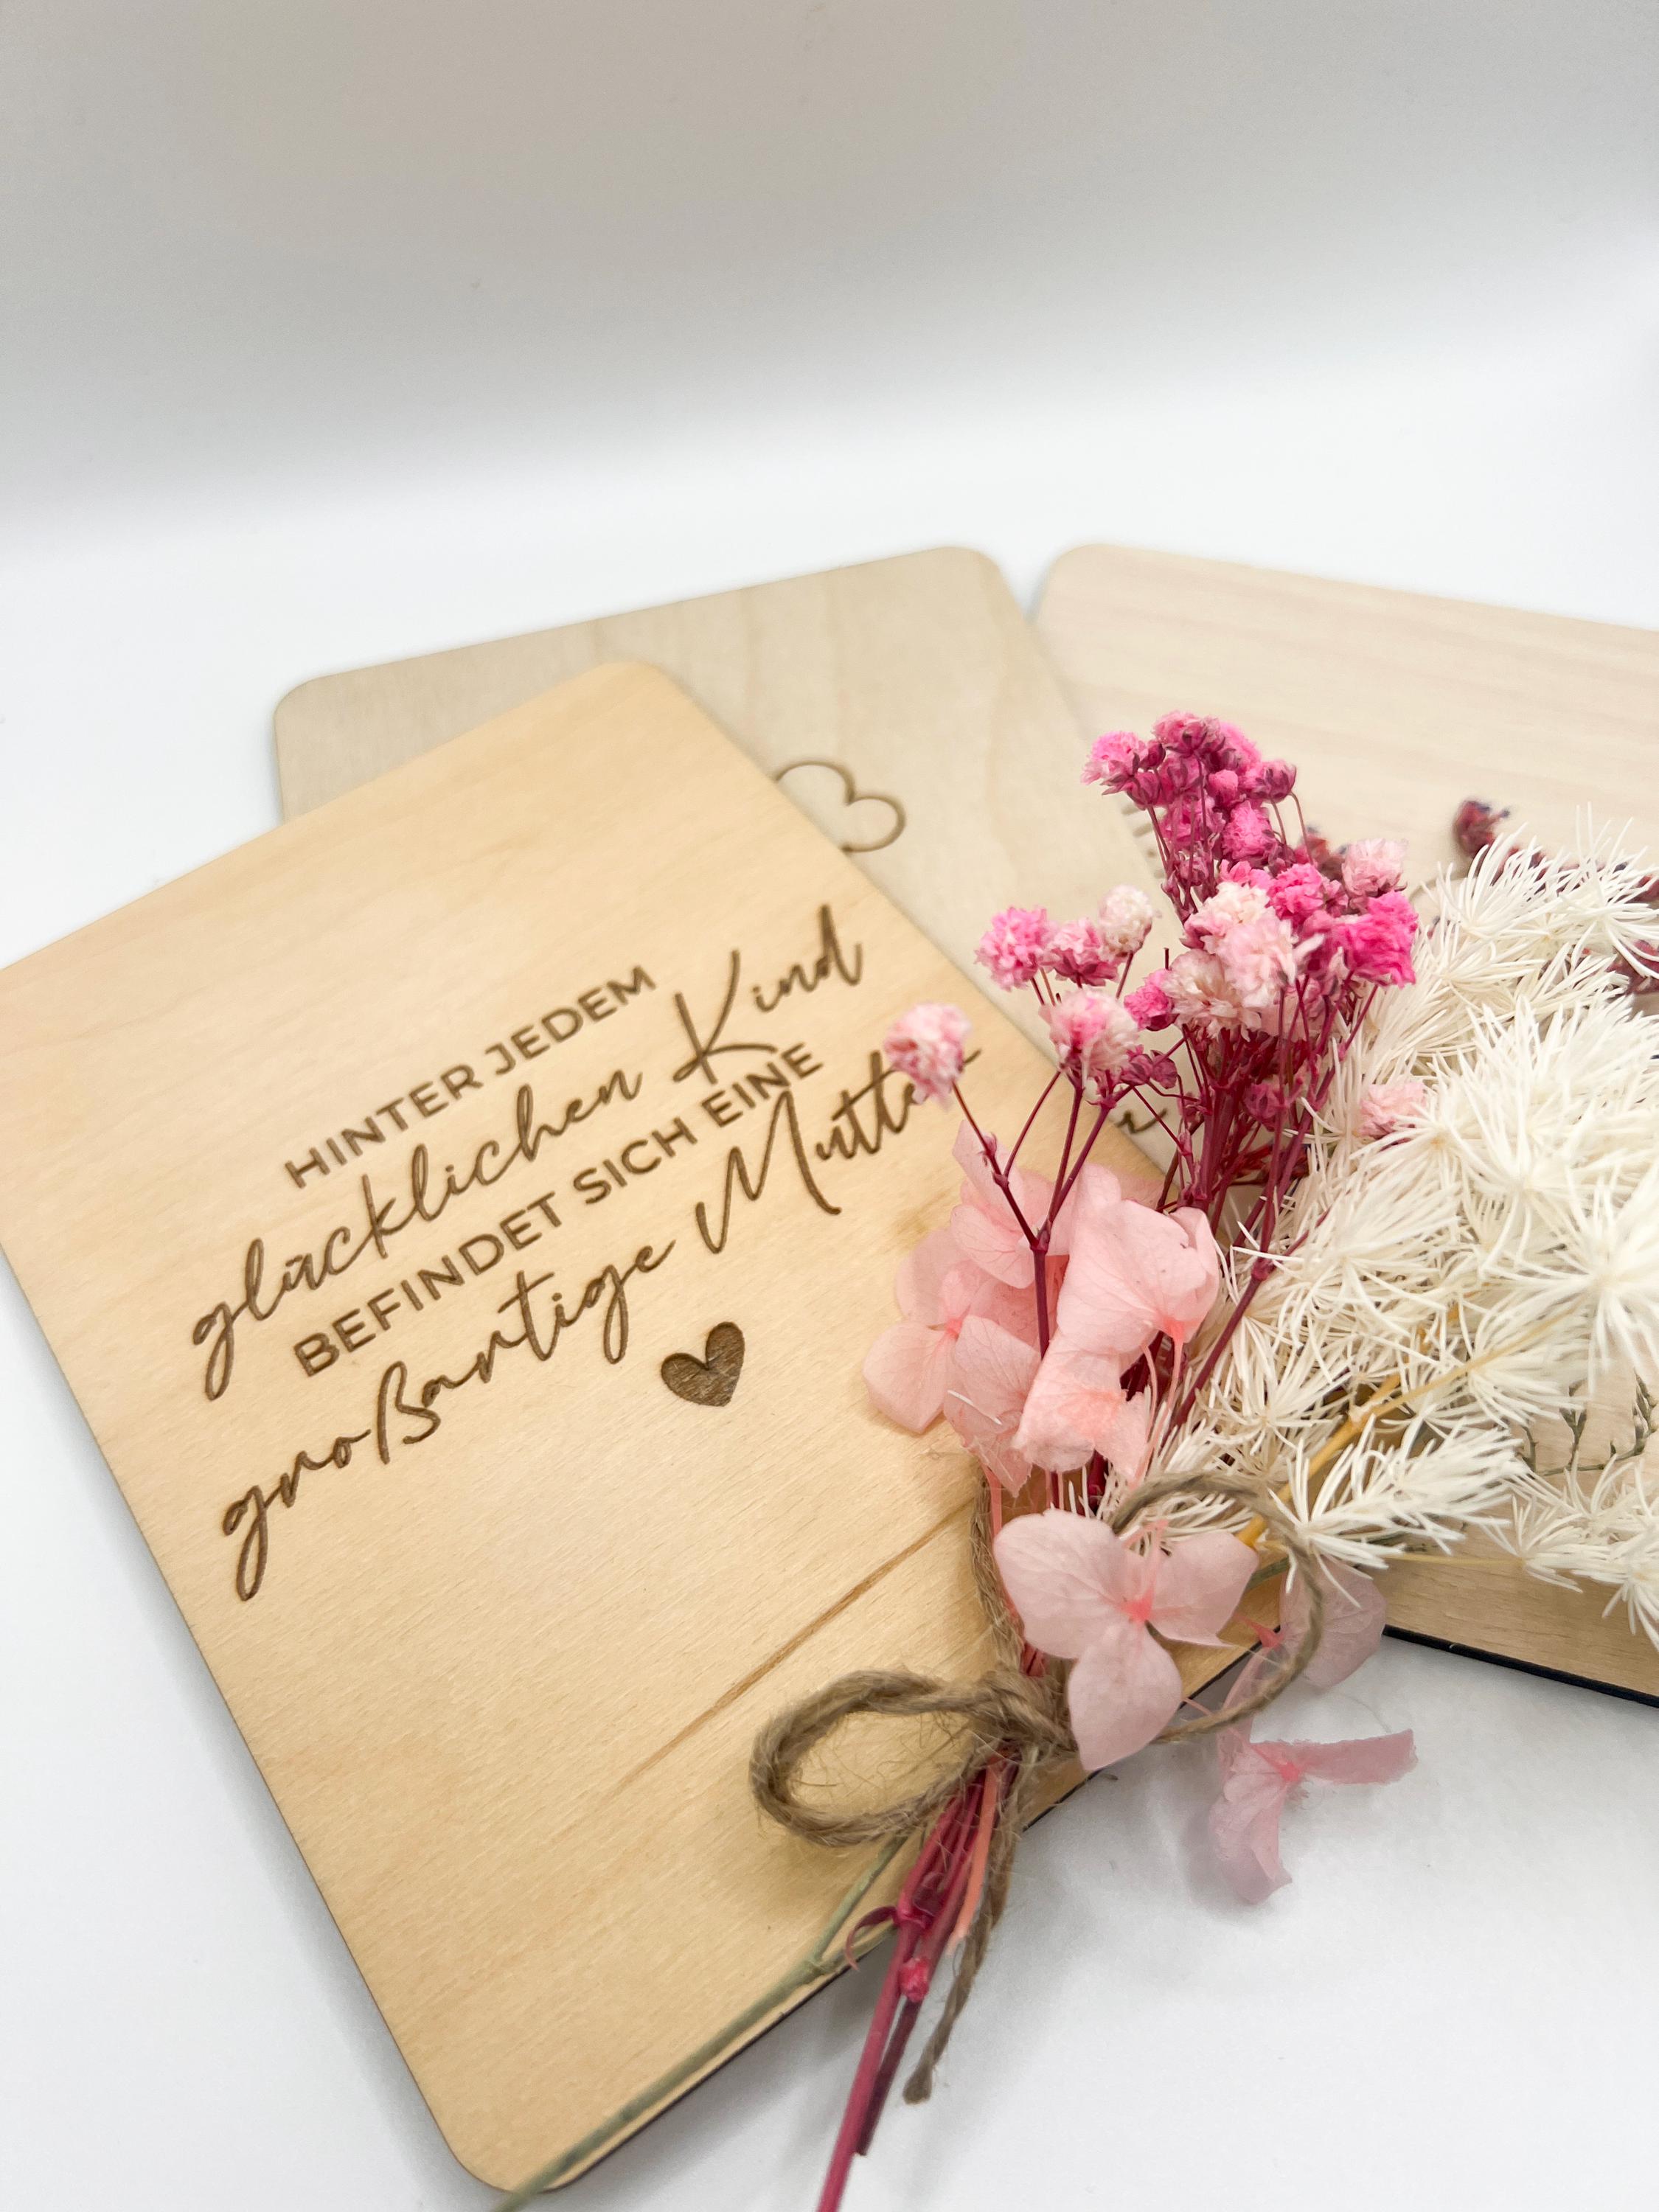 HINTER JEDEM
glücklichen Kind
BEFINDET SICH EINE
großartige Mutter